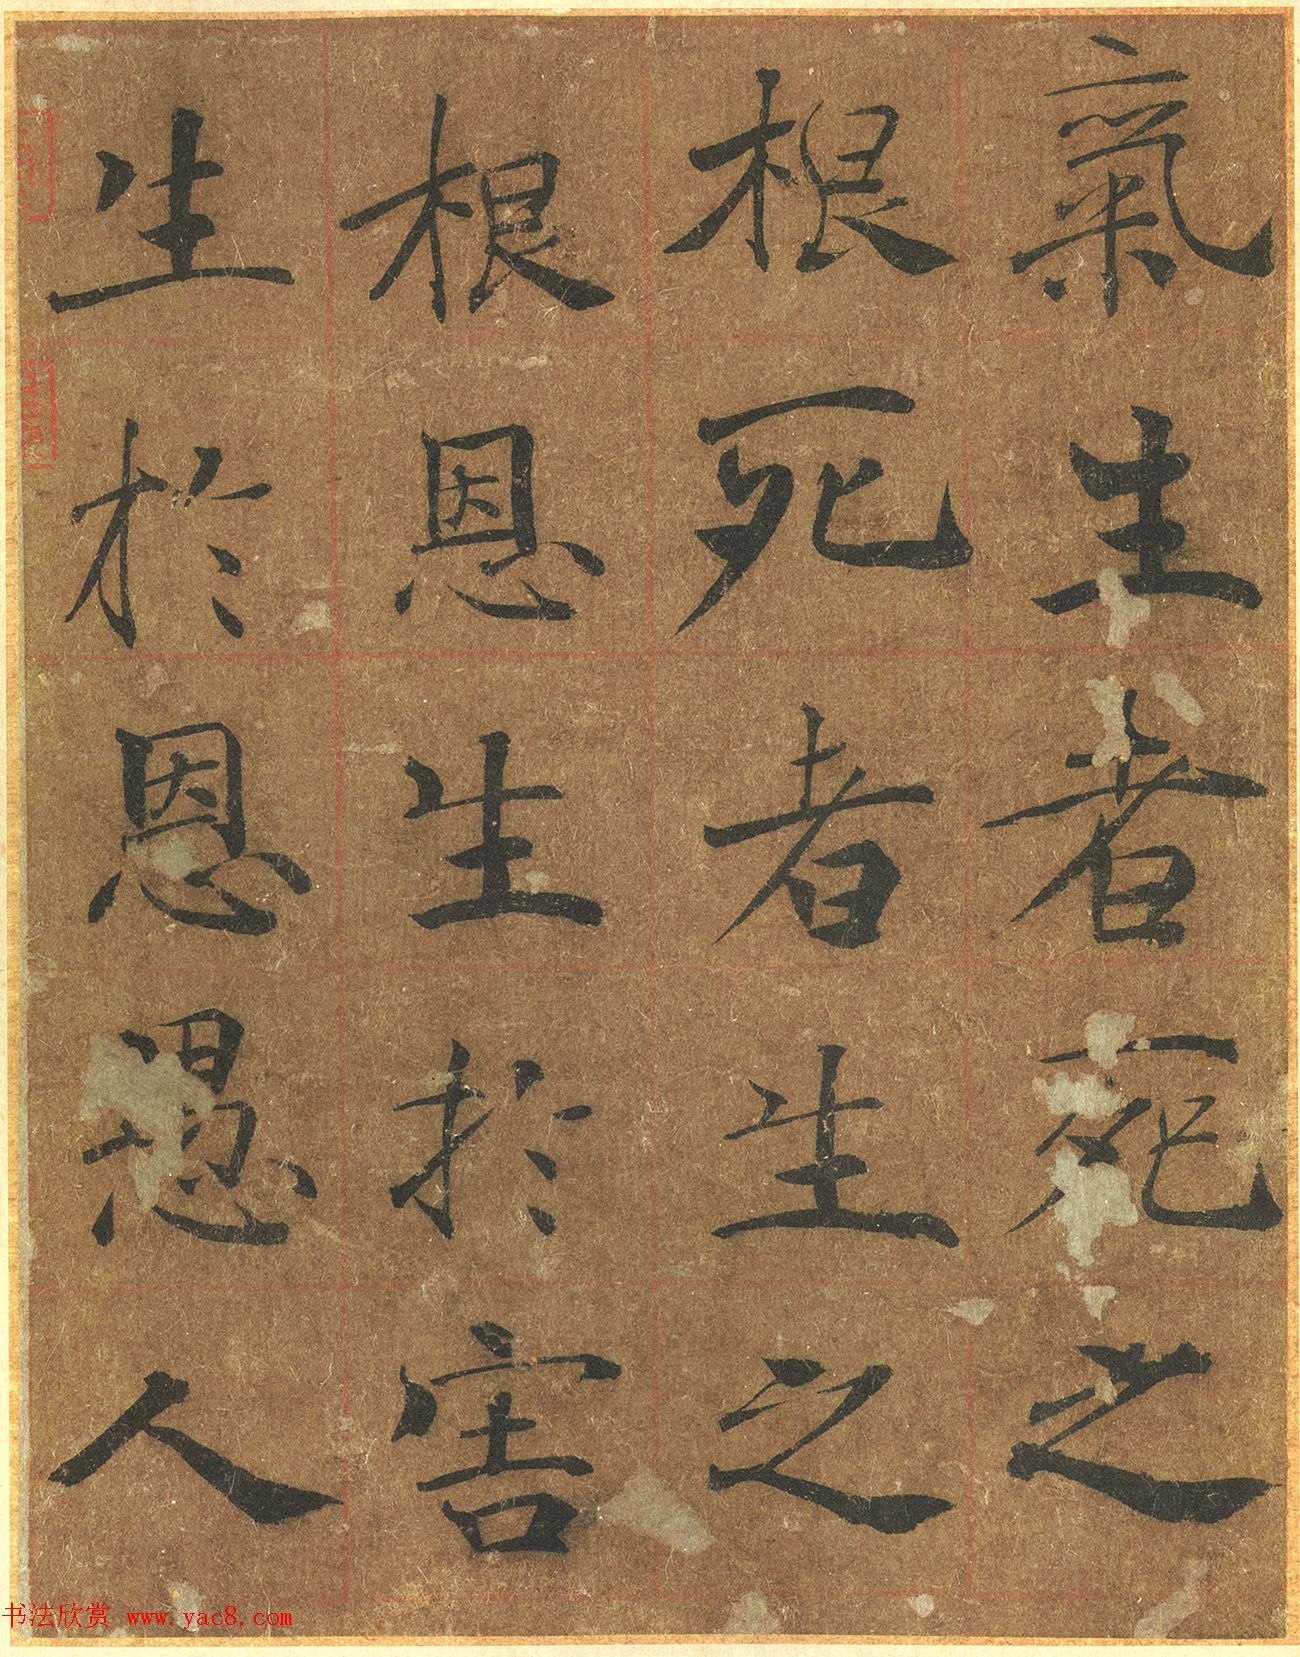 氣生者死之
根死者生之
根恩生於害
生於恩愚人
书法欣赏 www.yac8.com